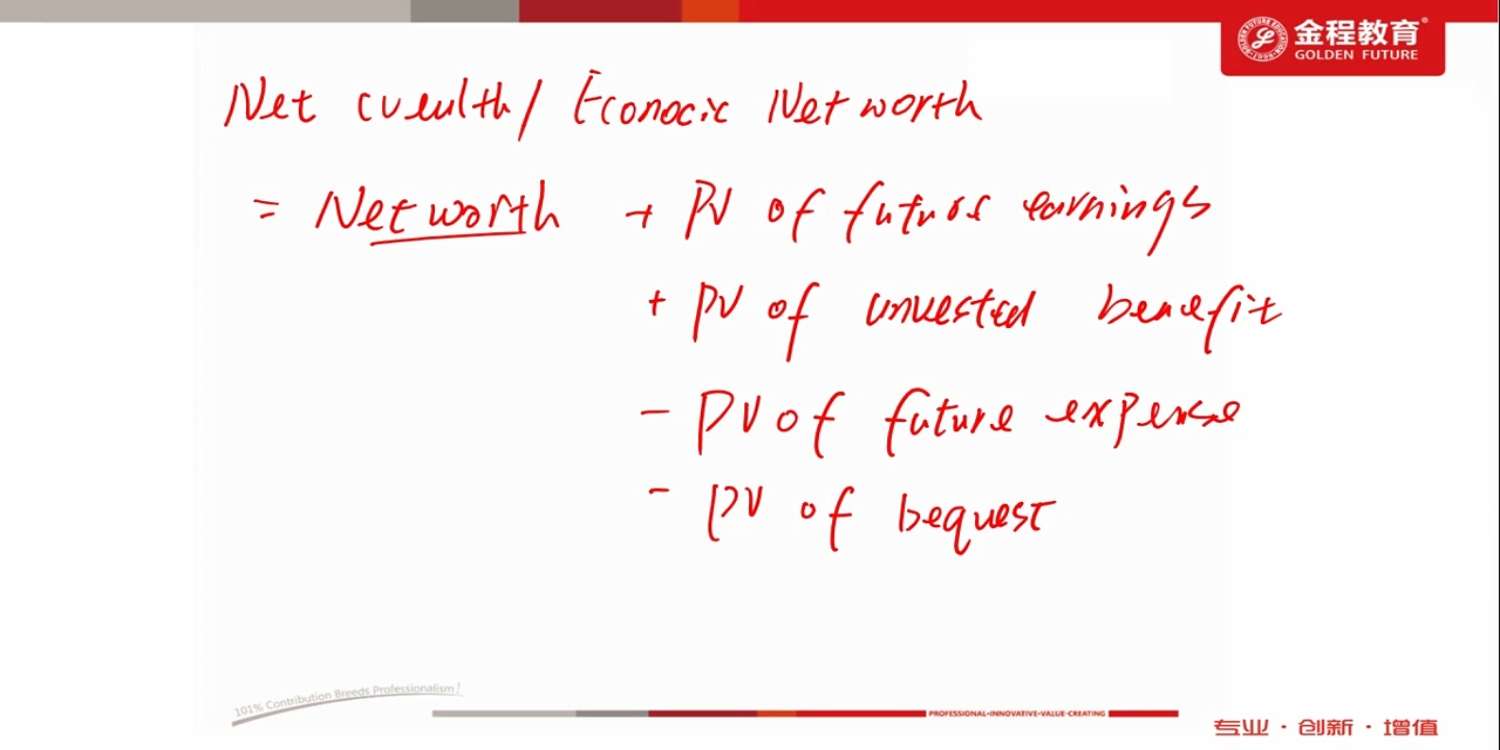 金程教育®
GOLDEN FUTURE
Net wealth / Economic Net worth
= Net worth + PV of future earnings
+ PV of unvested benefit
- PV of future expense
- PV of bequest
101% Contribution Breeds Professionalism!
PROFESSIONAL·INNOVATIVE·VALUE-CREATING
专业·创新·增值